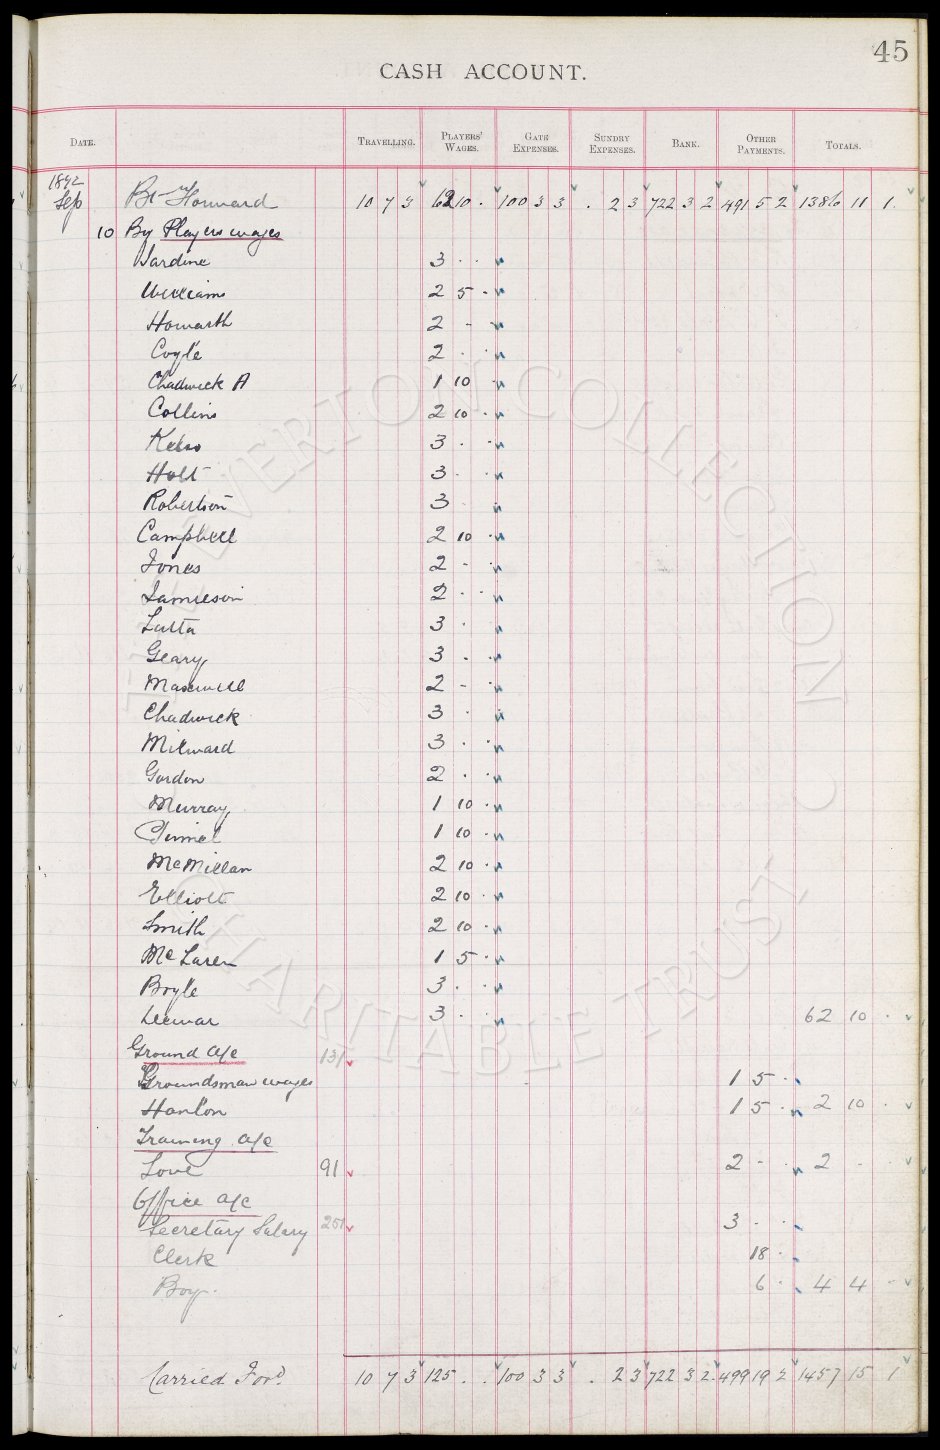 45
CASH ACCOUNT.
DATE. TRAVELLING. PLAYERS' WAGES. GATE EXPENSES. SUNDRY EXPENSES. BANK. OTHER PAYMENTS. TOTALS.
1892
Sep Bt Forward 10 7 3 62 10 . 100 3 3 . 2 3 722 3 2 491 5 2 1386 11 1
10 By Players wages
Jardine 3 . .
Williams 2 5 -
Howarth 2 - -
Coyle 2 . .
Chadwick A 1 10 .
Collins 2 10 .
Kelso 3 . .
Holt 3 . .
Robertson 3 .
Campbell 2 10 .
Jones 2 - .
Jamieson 2 . .
Latta 3 .
Geary 3 . .
Maxwell 2 - .
Chadwick 3 .
Milward 3 . .
Gordon 2 . .
Murray 1 10 .
1 10 .
McMillan 2 10 .
Elliott 2 10 .
Smith 2 10 .
Mc Laren 1 5 .
Boyle 3 . .
Dewar 3 . . 62 10 .
Ground a/c 131
Groundsman wages 1 5 .
Hanlon 1 5 . 2 10 .
Training a/c
Love 91 2 - . 2 -
Office a/c
Secretary Salary 251 3 . .
Clerk 18 .
Boy. 6 . 4 4 -
Carried Ford. 10 7 3 125 . . 100 3 3 . 2 3 722 3 2 499 19 2 1457 15 1
THE EVERTON COLLECTION
CHARITABLE TRUST